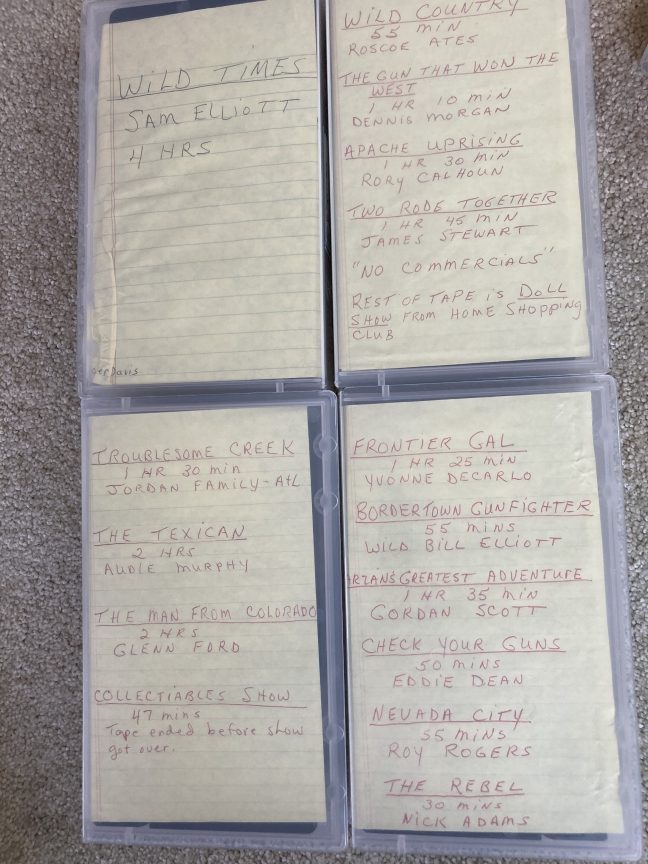 WILD TIMES
SAM ELLIOTT
4 HRS
ger Davis
WILD COUNTRY
55 MIN
ROSCOE ATES
THE GUN THAT WON THE
WEST
1 HR 10 MIN
DENNIS MORGAN
APACHE UPRISING
1 HR 30 MIN
RORY CALHOUN
TWO RODE TOGETHER
1 HR 45 MIN
JAMES STEWART
"NO COMMERCIALS"
REST OF TAPE iS DOLL
SHOW FROM HOME SHOPPING
CLUB
TROUBLESOME CREEK
1 HR 30 min
JORDAN FAMILY-AtL
THE TEXICAN
2 HRS
AUDIE MURPHY
THE MAN FROM COLORADO
2 HRS
GLENN FORD
COLLECTIABLES SHOW
47 mins
Tape ended before show
got over.
FRONTIER GAL
1 HR 25 MIN
YVONNE DECARLO
BORDERTOWN GUNFIGHTER
55 MINS
WILD BILL ELLIOTT
RZAN'S GREATEST ADVENTURE
1 HR 35 MIN
GORDAN SCOTT
CHECK YOUR GUNS
50 MINS
EDDIE DEAN
NEVADA CITY
55 MINS
ROY ROGERS
THE REBEL
30 MINS
NICK ADAMS